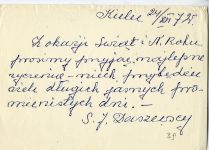 Kielce 24/XII 75.
Z okazji Świąt i N. Roku
prosimy przyjąć najlepsze
życzenia – niech przybędzie
wiele długich jasnych pro-
mienistych dni. –
S. J. Daszewscy